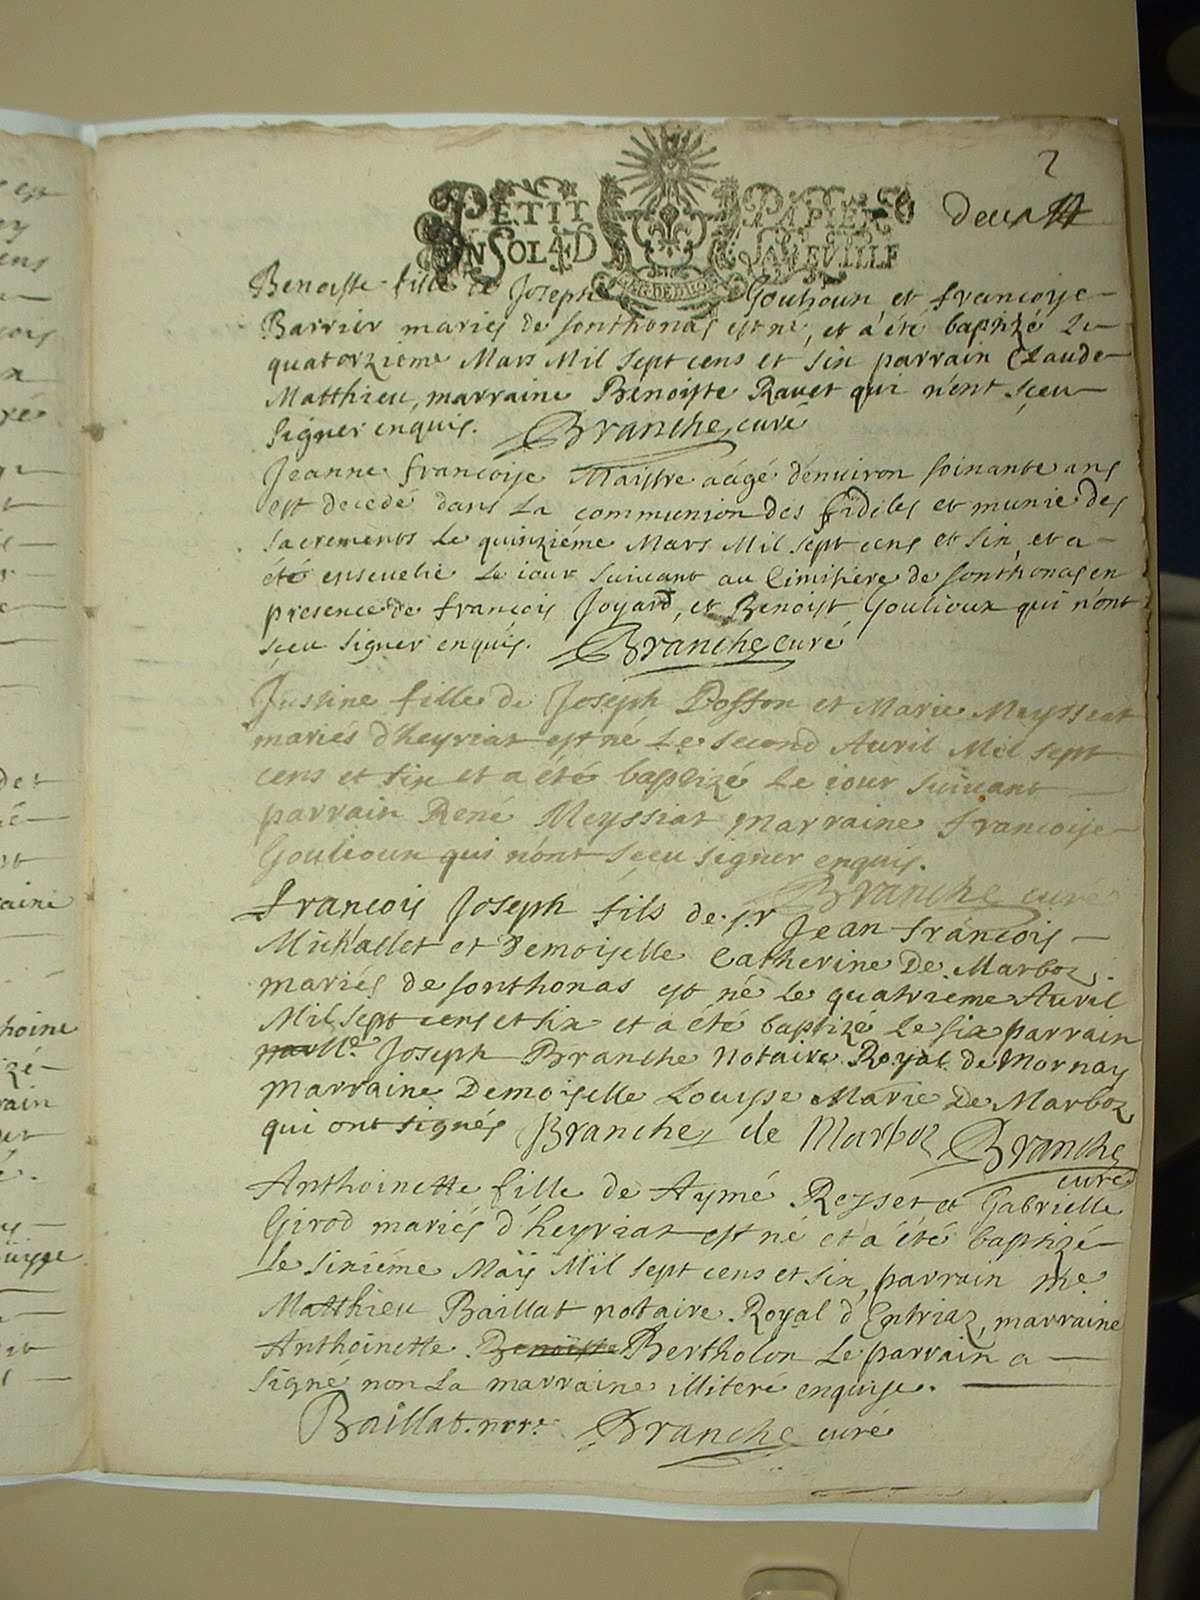 2
PETIT PAPIER
UN SOL 4 D LA FEUILLE
Benoiste fille de Joseph Goulioux et francoise
Barrier mariés de sonthonas est né, et a été baptizé le
quatorziéme Mars Mil sept cens et six parrain Claude
Matthieu, marraine Benoiste Ravet qui n'ont sçeu
signer enquis. Branche curé
Jeanne francoise Maistre aâgé d'enuiron soixante ans
est decedé dans la communion des fidéles et munie des
sacrements le quinziéme Mars Mil sept cens et six, et a
été enseuelie le iour suiuant au Cimitiere de sonthonas en
presence de francois Joyard, et Benoist Goulioux qui n'ont
sçeu signer enquis. Branche curé
Justine fille de Joseph Posson et Marie Meyssiat
mariés d'heyriat est né le second Auril Mil sept
cens et six et a été baptizé le iour suiuant
parrain René Meyssiat marraine francoise
Goulioux qui n'ont sçeu signer enquis.
Branche curé
francois Joseph fils de sr Jean francois
Michallet et Demoiselle Catherine De Marboz
mariés de sonthonas est né le quatrieme Auril
Mil sept cens et six et a été baptizé le six parrain
Me Joseph Branche Notaire Royal de Mornay
marraine Demoiselle Louyse Marie De Marboz
qui ont signés Branche de Marboz Branche
curé
Anthoinette fille de Aymé Reysset et Gabrielle
Girod mariés d'heyriat est né et a été baptizé
le sixiéme Maÿ Mil sept cens et six, parrain Me
Matthieu Baillat notaire Royal d'Entriaz, marraine
Anthoinette Benoiste Bertholon le parrain a
signé non la marraine illiteré enquise.
Baillat nore Branche curé